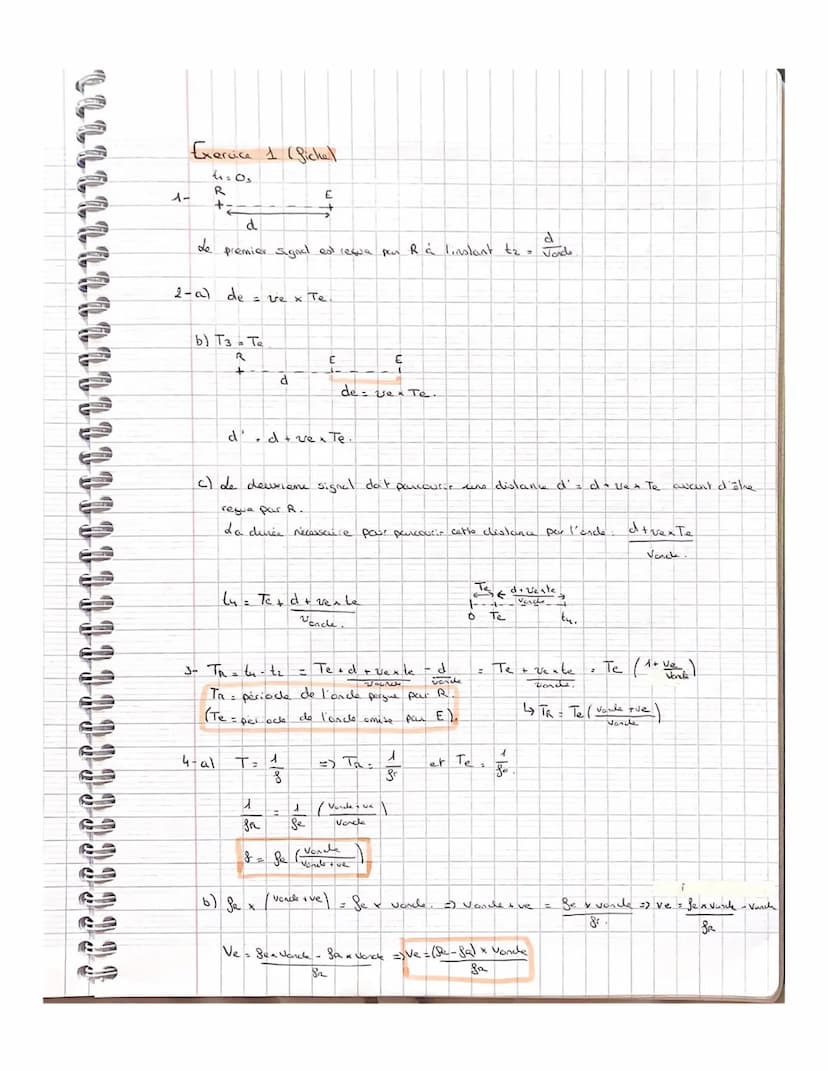 Exercice 1 (fiche)
t1 = 0s
1- R E
d
Le premier signal est reçua par R à l'instant t2 = d/Vonde
2-a) de = ve × Te.
b) T3 = Te
R E E
d
de = ve × Te.
d' = d + ve × Te.
c) Le deuxième signal doit parcourir une distance d' = d + ve × Te avant d'être
reçua par R.
La durée nécessaire pour parcourir cette distance par l'onde : (d + ve × Te)/Vonde.
t4 = Te + (d + ve × te)/Vonde.
Te (d + ve × te)/Vonde
0 Te t4.
3- TR = t4 - t2 = Te + (d + ve × te)/Vonde - d/Vonde = Te + (ve × te)/Vonde. = Te (1 + Ve/Vonde)
TR = période de l'onde perçue par R.
(Te = période de l'onde émise par E).
↳ TR = Te (Vonde + ve / Vonde)
4-a) T = 1/f => TR = 1/fr et Te = 1/fe.
1/fR = 1/fe (Vonde + ve / Vonde)
f = fe (Vonde / Vonde + ve)
b) fR × (Vonde + ve) = fe × Vonde. => Vonde + ve = (fe × Vonde)/fr. => ve = (fe × Vonde)/fR - Vonde
Ve = (fe × Vonde - fR × Vonde)/fR => Ve = ((fe - fR) × Vonde)/fR